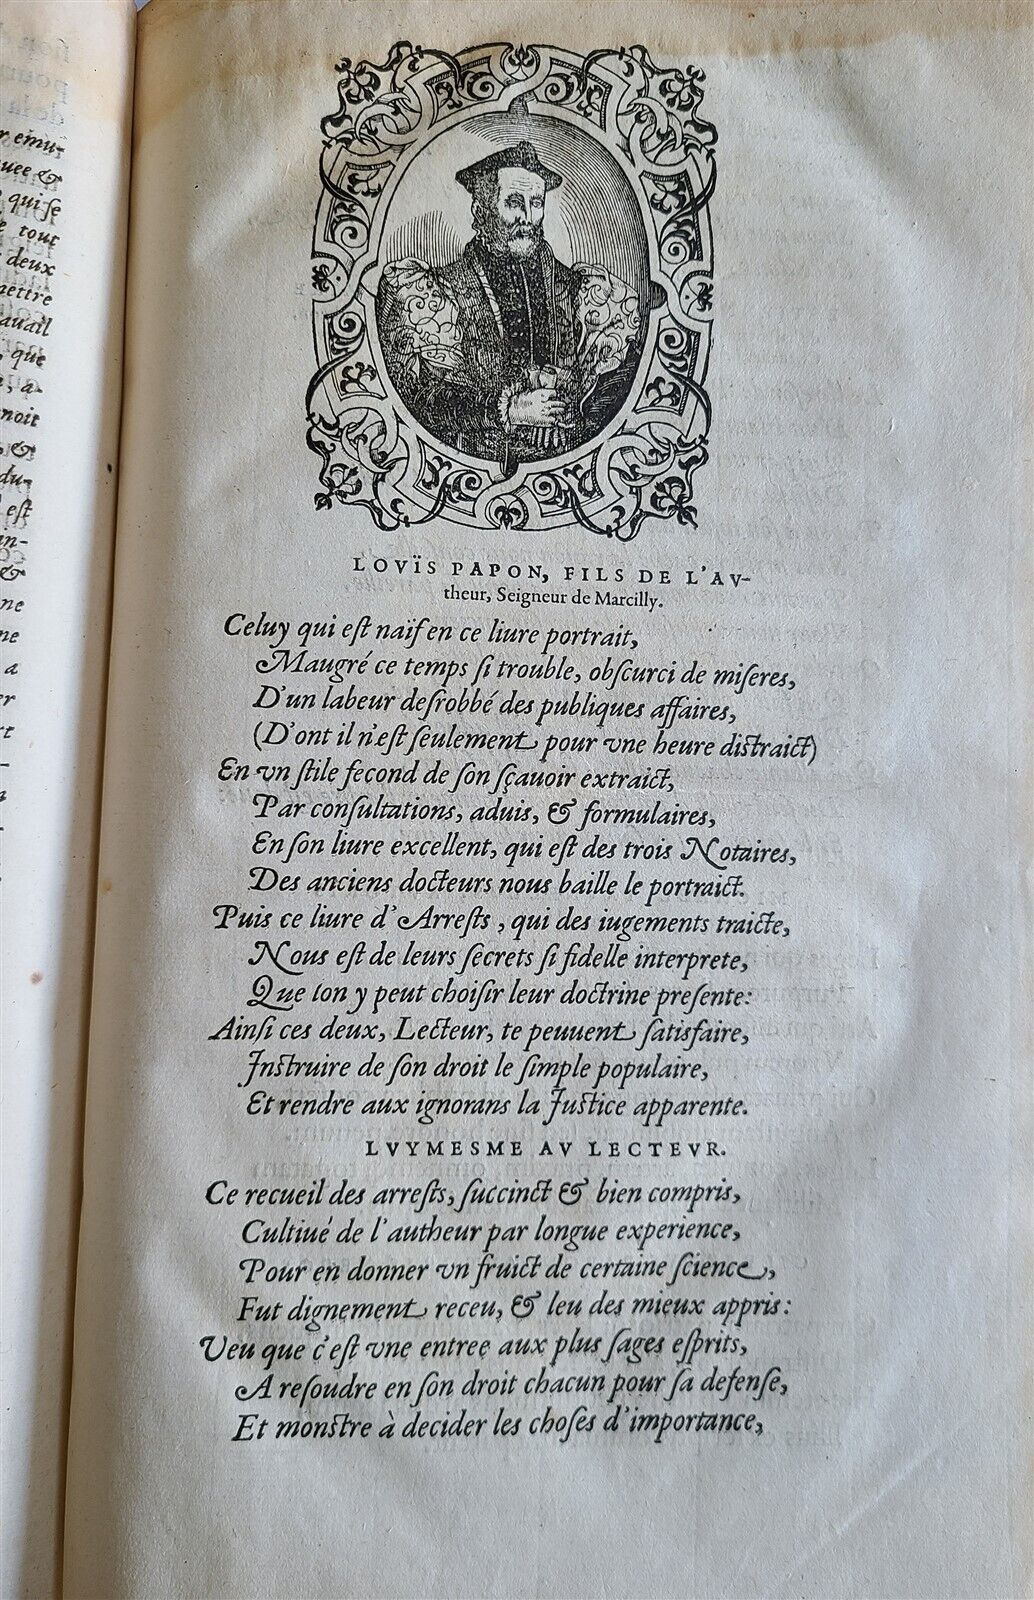 r emu-
uee &
qui se
e tout
deux
mettre
auail
, que
, a-
noit
, &
du-
est
in-
&
ne
ne
a
er
rt
LOVÏS PAPON, FILS DE L'AV-
theur, Seigneur de Marcilly.
Celuy qui eſt naïf en ce liure portrait,
Maugré ce temps ſi trouble, obſcurci de miſeres,
D'un labeur deſrobbé des publiques affaires,
(D'ont il n'eſt ſeulement pour vne heure diſtraict)
En vn ſtile fecond de ſon ſçauoir extraict,
Par conſultations, aduis, & formulaires,
En ſon liure excellent, qui eſt des trois Notaires,
Des anciens docteurs nous baille le portraict.
Puis ce liure d'Arreſts, qui des iugements traicte,
Nous eſt de leurs ſecrets ſi fidelle interprete,
Que lon y peut choiſir leur doctrine preſente:
Ainſi ces deux, Lecteur, te peuuent ſatisfaire,
Inſtruire de ſon droit le ſimple populaire,
Et rendre aux ignorans la Juſtice apparente.
LVYMESME AV LECTEVR.
Ce recueil des arreſts, ſuccinct & bien compris,
Cultiué de l'autheur par longue experience,
Pour en donner vn fruict de certaine ſcience,
Fut dignement receu, & leu des mieux appris:
Veu que c'eſt vne entree aux plus ſages eſprits,
A reſoudre en ſon droit chacun pour ſa defenſe,
Et monſtre à decider les choſes d'importance,